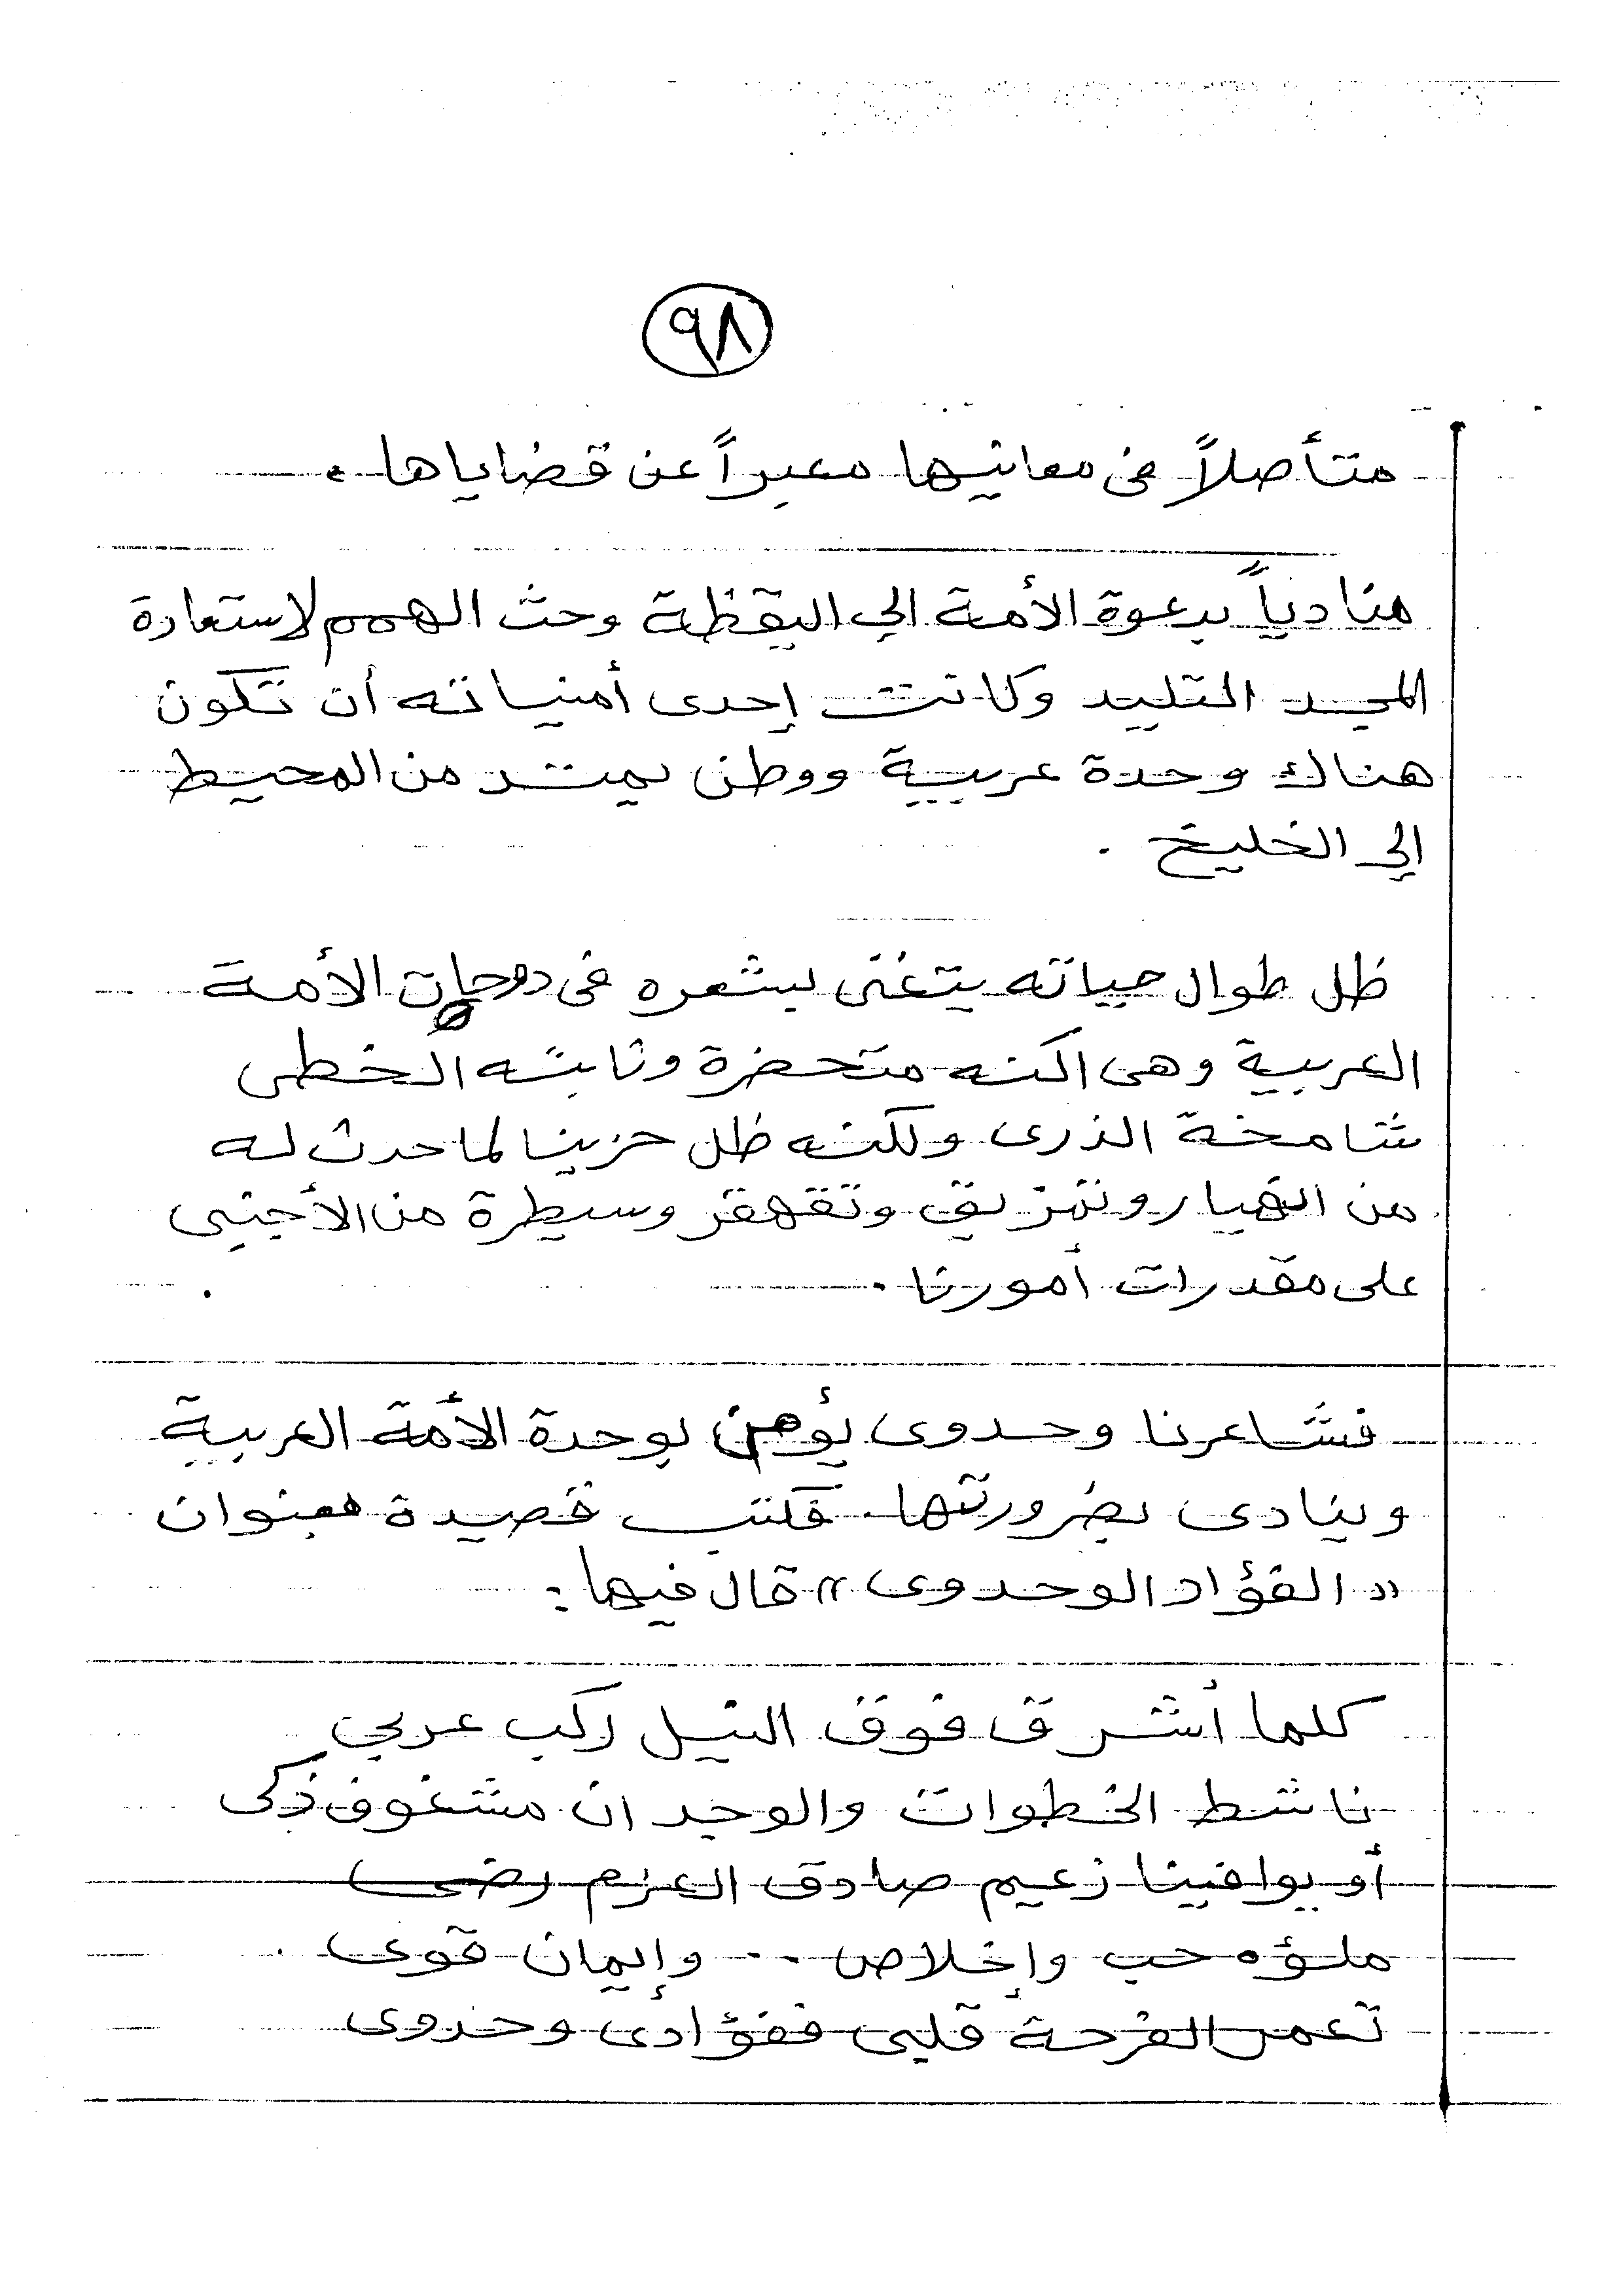 ٩٨
متأصلاً فى معانيها معبراً عن قضاياها .
منادياً بدعوة الأمة إلى اليقظة وحث الهمم لاستعادة
المجد التليد وكانت إحدى أمنياته أن تكون
هناك وحدة عربية ووطن يمتد من المحيط
إلى الخليج .
ظل طوال حياته يتغنى بشعره فى دوحات الأمة
العربية وهى متحضرة وثابته الخطى
شامخة الذرى ولكنه ظل حزينا لما حدث له
من انهيار وتمزيق وتقهقر وسيطرة من الأجنبى
على مقدرات أمورنا .
فشاعرنا وحدوى يؤمن بوحدة الأمة العربية
وينادى بضرورتها . فكتب قصيدة بعنوان
« الفؤاد الوحدوى » قال فيها :
كلما أشرق فوق النيل ركب عربي
ناشط الخطوات والوجدان مشغوف ذكى
أو يوافينا زعيم صادق العزم رضى
ملؤه حب وإخلاص .. وإيمان قوى
تعمر الفرحة قلبى ففؤادى وحدوى